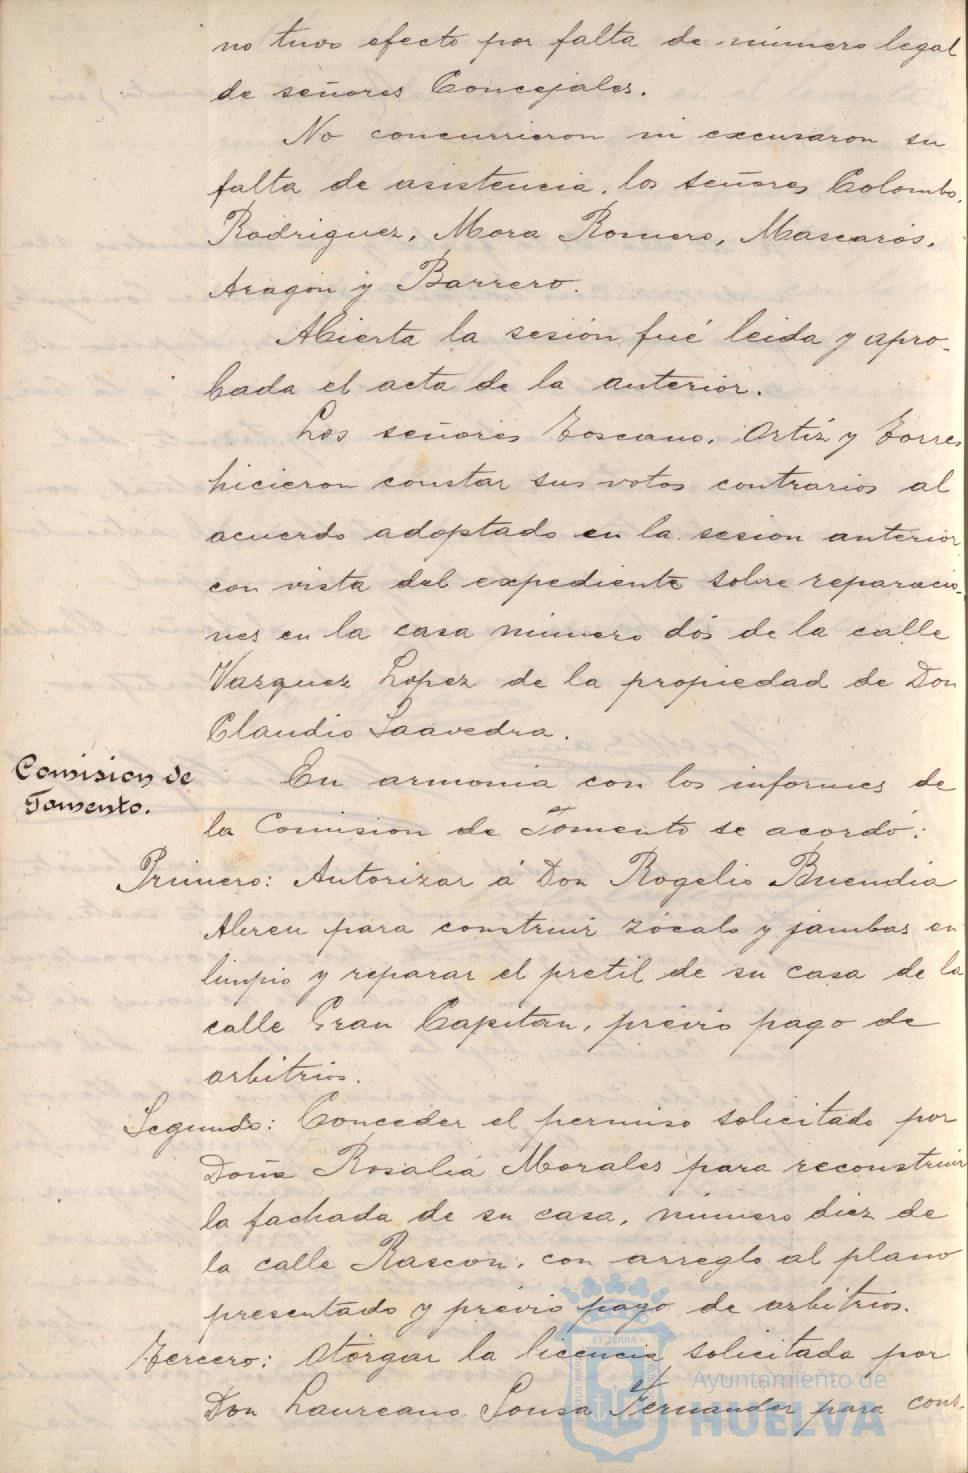 no tuvo efecto por falta de número legal
de señores Concejales.
No concurrieron ni excusaron su
falta de asistencia, los señores Colombo,
Rodriguez, Mora Romero, Mascarós,
Aragón y Barrero.
Abierta la sesión fué leida y apro-
bada el acta de la anterior.
Los señores Toscano, Ortíz y Torres
hicieron constar sus votos contrarios al
acuerdo adoptado en la sesion anterior
con vista del expediente sobre reparacio-
nes en la casa número dós de la calle
Vazquez Lopez de la propiedad de Don
Claudio Saavedra.
Comision de
Fomento.
En armonia con los informes de
la Comision de Fomento se acordó:
Primero: Autorizar á Don Rogelio Buendía
Abreu para construir zócalo y jambas en
limpio y reparar el pretil de su casa de la
calle Gran Capitan, prévio pago de
arbitrios.
Segundo: Conceder el permiso solicitado por
Doña Rosalía Morales para reconstruir
la fachada de su casa, número diez de
la calle Rascon, con arreglo al plano
presentado y prévio pago de arbitrios.
Tercero: Otorgar la licencia solicitada por
Don Laureano Sousa Fernandez para cons-
Ayuntamiento de
HUELVA